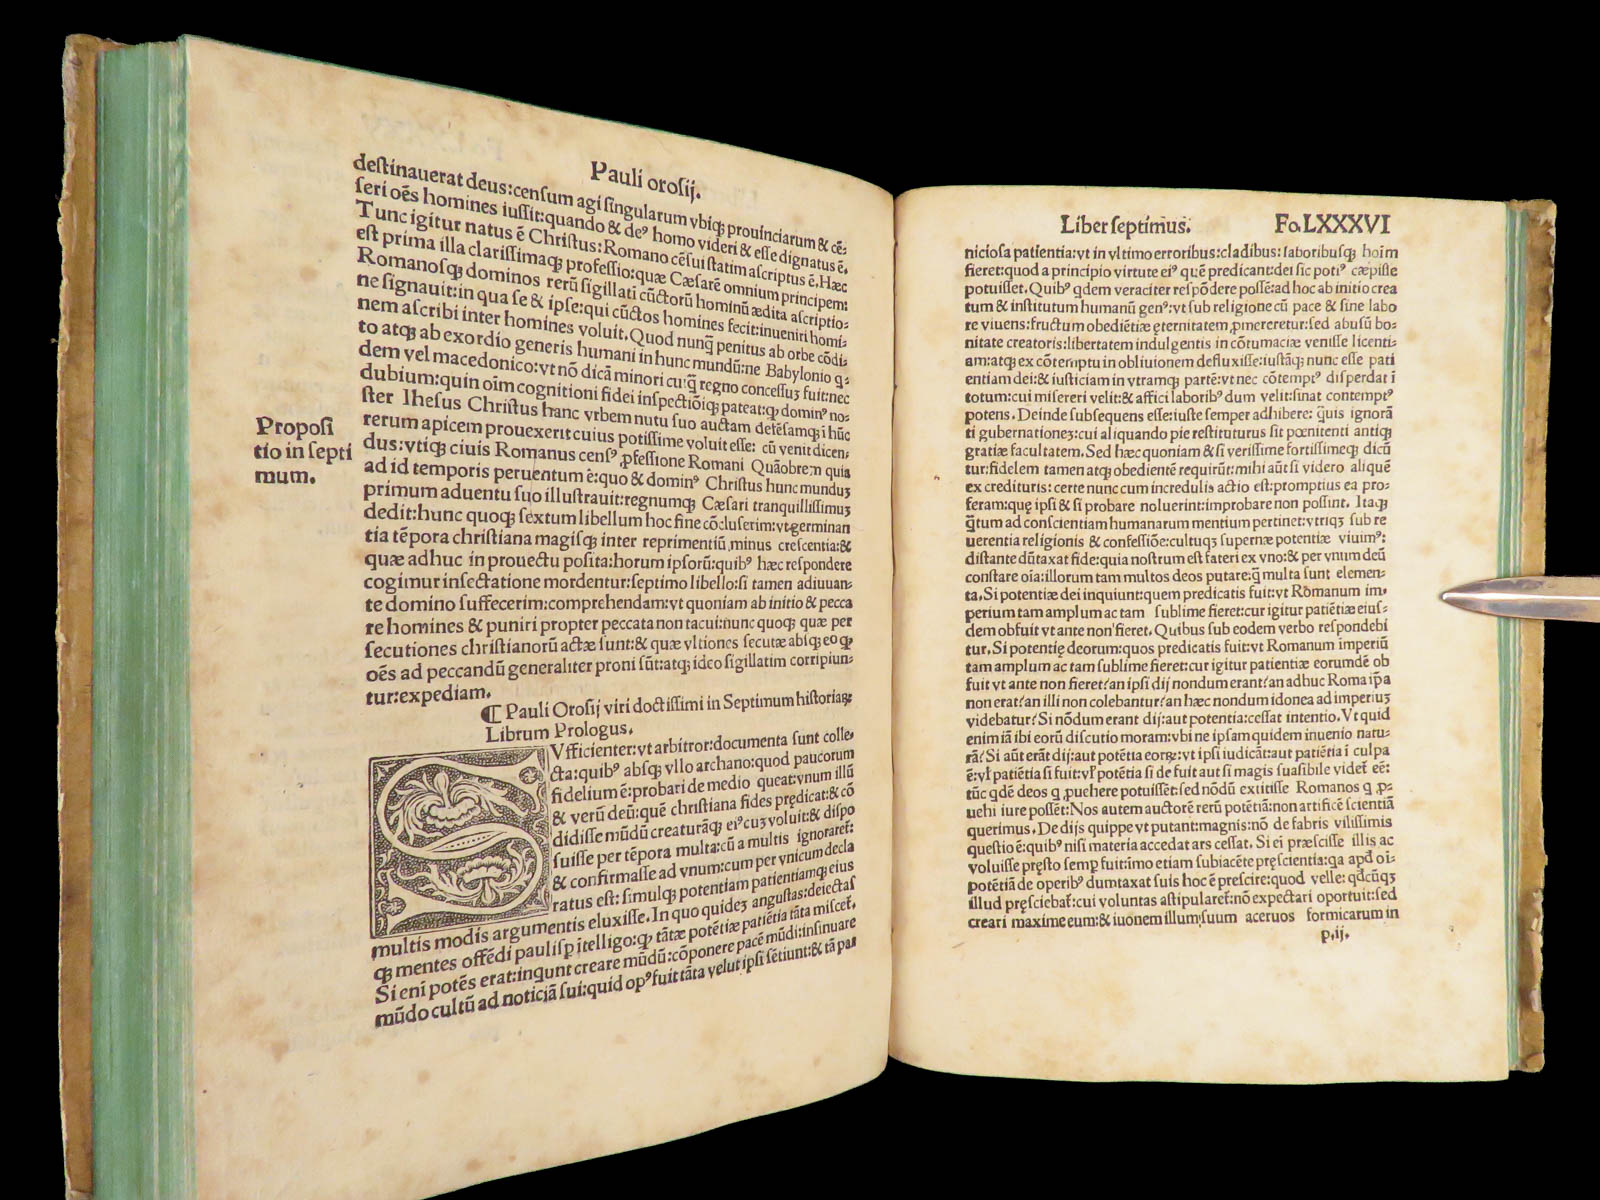 Pauli orosij.
destinauerat deus:censum agi singularum vbiqꝫ prouinciarum & cē-
seri oēs homines iussit:quando & deꝰ homo videri & esse dignatus ē.
Tunc igitur natus ē Christus: Romano cēsui statim ascriptus ē. Hæc
est prima illa clarissimaqꝫ professio:quæ Cæsarē omnium principem:
Romanosqꝫ dominos rerū sigillati cūctorū hominū ædita ascriptio-
ne signauit:in qua se & ipse:qui cūctos homines fecit:inueniri homi-
nem ascribi inter homines voluit. Quod nunq̄ penitus ab orbe cōdi-
to atqꝫ ab exordio generis humani in hunc mundū:ne Babylonio q-
dem vel macedonico:vt nō dicā minori cuiq̄ regno concessuꝫ fuit:nec
dubium:quin oīm cognitioni fidei inspectiōiqꝫ pateat:qꝫ dominꝰ no-
ster Ihesus Christus hanc vrbem nutu suo auctam defēsamqꝫ ī hūc
rerum apicem prouexerit cuius potissime voluit esse: cū venit dicen-
dus:vtiqꝫ ciuis Romanus censꝰ ꝓfessione Romani Quāobrem quia
ad id temporis peruentum ē:quo & dominꝰ Christus hunc munduꝫ
primum aduentu suo illustrauit:regnumqꝫ Cæsari tranquillissimuꝫ
dedit:hunc quoqꝫ sextum libellum hoc fine cōcluserim:vt germinan
tia tēpora christiana magisqꝫ inter reprimentiū minus crescentia:&
quæ adhuc in prouectu posita:horum ipsorū:quibꝰ hæc respondere
cogimur insectatione mordentur:septimo libello:si tamen adiuuan-
te domino suffecerim:comprehendam:vt quoniam ab initio & pecca
re homines & puniri propter peccata non tacui:nunc quoqꝫ quæ per
secutiones christianorū actæ sunt:& quæ vltiones secutæ absqꝫ eo qꝫ
oēs ad peccandū generaliter proni sūt:atqꝫ ideo sigillatim corripiun-
tur:expediam.
Proposi
tio in septi
mum.
¶ Pauli Orosij viri doctissimi in Septimum historiaꝝ
Librum Prologus.
SVfficienter:vt arbitror:documenta sunt colle-
cta:quibꝰ absqꝫ vllo archano:quod paucorum
fidelium ē:probari de medio queat:vnum illū
& verū deū:quē christiana fides prędicat:& cō
didisse mūdū creaturāqꝫ eiꝰ cuꝫ voluit:& dispo
suisse per tēpora multa:cū a multis ignoraret:
& confirmasse ad vnum:cum per vnicum decla
ratus est:simulqꝫ potentiam patientiamqꝫ eius
multis modis argumentis eluxisse. In quo quideꝫ angustas:deiectas
qꝫ mentes offēdi paulisꝑ ītelligo:qꝫ tātæ potētiæ patiētia tāta miscet.
Si enī potēs erat:inqunt creare mūdū:cōponere pacē mūdi:insinuare
mūdo cultū ad noticiā sui:quid opꝰ fuit tāta velut ipsi sētiunt:& tā pa
Liber septimus. Fo.LXXXVI
niciosa patientia:vt in vltimo erroribus:cladibus:laboribusqꝫ hoīm
fieret:quod a principio virtute eiꝰ quē predicant:dei sic potiꝰ cæpisse
potuisset. Quibꝰ qdem veraciter respōdere possē:ad hoc ab initio crea
tum & institutum humanū genꝰ:vt sub religione cū pace & sine labo
re viuens:fructum obediētiæ ęternitatem ꝓmereretur:sed abusū bo-
nitate creatoris:libertatem indulgentis in cōtumaciæ venisse licenti-
am:atqꝫ ex cōtemptu in obliuionem defluxisse:iustāqꝫ nunc esse pati
entiam dei:& iusticiam in vtramqꝫ partē:vt nec cōtemptꝰ disperdat ī
totum:cui misereri velit:& affici laboribꝰ dum velit:sinat contemptꝰ
potens. Deinde subsequens esse:iuste semper adhibere: quis ignorā
ti gubernationeꝫ:cui aliquando pie restituturus sit pœnitenti antiqꝫ
gratiæ facultatem. Sed hæc quoniam & si verissime fortissimeqꝫ dicū
tur:fidelem tamen atqꝫ obedientē requirūt:mihi aūt si videro aliquē
ex credituris: certe nunc cum incredulis actio est:promptius ea pro-
feram:quę ipsi & si probare noluerint:improbare non possint. Itaqꝫ
q̄tum ad conscientiam humanarum mentium pertinet:vtriqꝫ sub re
uerentia religionis & confessiōe:cultuqꝫ supernæ potentiæ viuimꝰ:
distante dūtaxat fide:quia nostrum est fateri ex vno:& per vnum deū
constare oīa:illorum tam multos deos putare:q̄ multa sunt elemen-
ta. Si potentiæ dei inquiunt:quem predicatis fuit:vt Romanum im-
perium tam amplum ac tam sublime fieret:cur igitur patiētiæ eius-
dem obfuit vt ante non fieret. Quibus sub eodem verbo respondebi
tur. Si potentię deorum:quos predicatis fuit:vt Romanum imperiū
tam amplum ac tam sublime fieret:cur igitur patientiæ eorumdē ob
fuit vt ante non fieret?an ipsi dij nondum erant?an adhuc Roma ip̄a
non erat?an illi non colebantur?an hæc nondum idonea ad imperiuꝫ
videbatur? Si nōdum erant dij:aut potentia:cessat intentio. Vt quid
enim iā ibi eorū discutio moram:vbi ne ipsam quidem inuenio natu-
rā? Si aūt erāt dij:aut potētia eoꝝ:vt ipsi iudicāt:aut patiētia ī culpa
ē:vel patiētia si fuit:vel potētia si de fuit aut si magis suasibile videt eē:
tūc qdē deos q ꝓuehere potuissēt:sed nōdū extitisse Romanos q ꝓ-
uehi iure possēt:Nos autem auctorē rerū potētiā:non artificē scientiā
querimus. De dijs quippe vt putant:magnis:nō de fabris vilissimis
questio ē:quibꝰ nisi materia accedat ars cessat. Si ei præscisse illis ac
voluisse pręsto semꝑ fuit:imo etiam subiacēte pręscientia:qa apd oī-
potētiā de operibꝰ dumtaxat suis hoc ē prescire:quod velle: qdcūqꝫ
illud pręsciebat:cui voluntas astipularet:nō expectari oportuit:sed
creari maxime eum:& iuonem illum:suum aceruos formicarum in
p.ij.